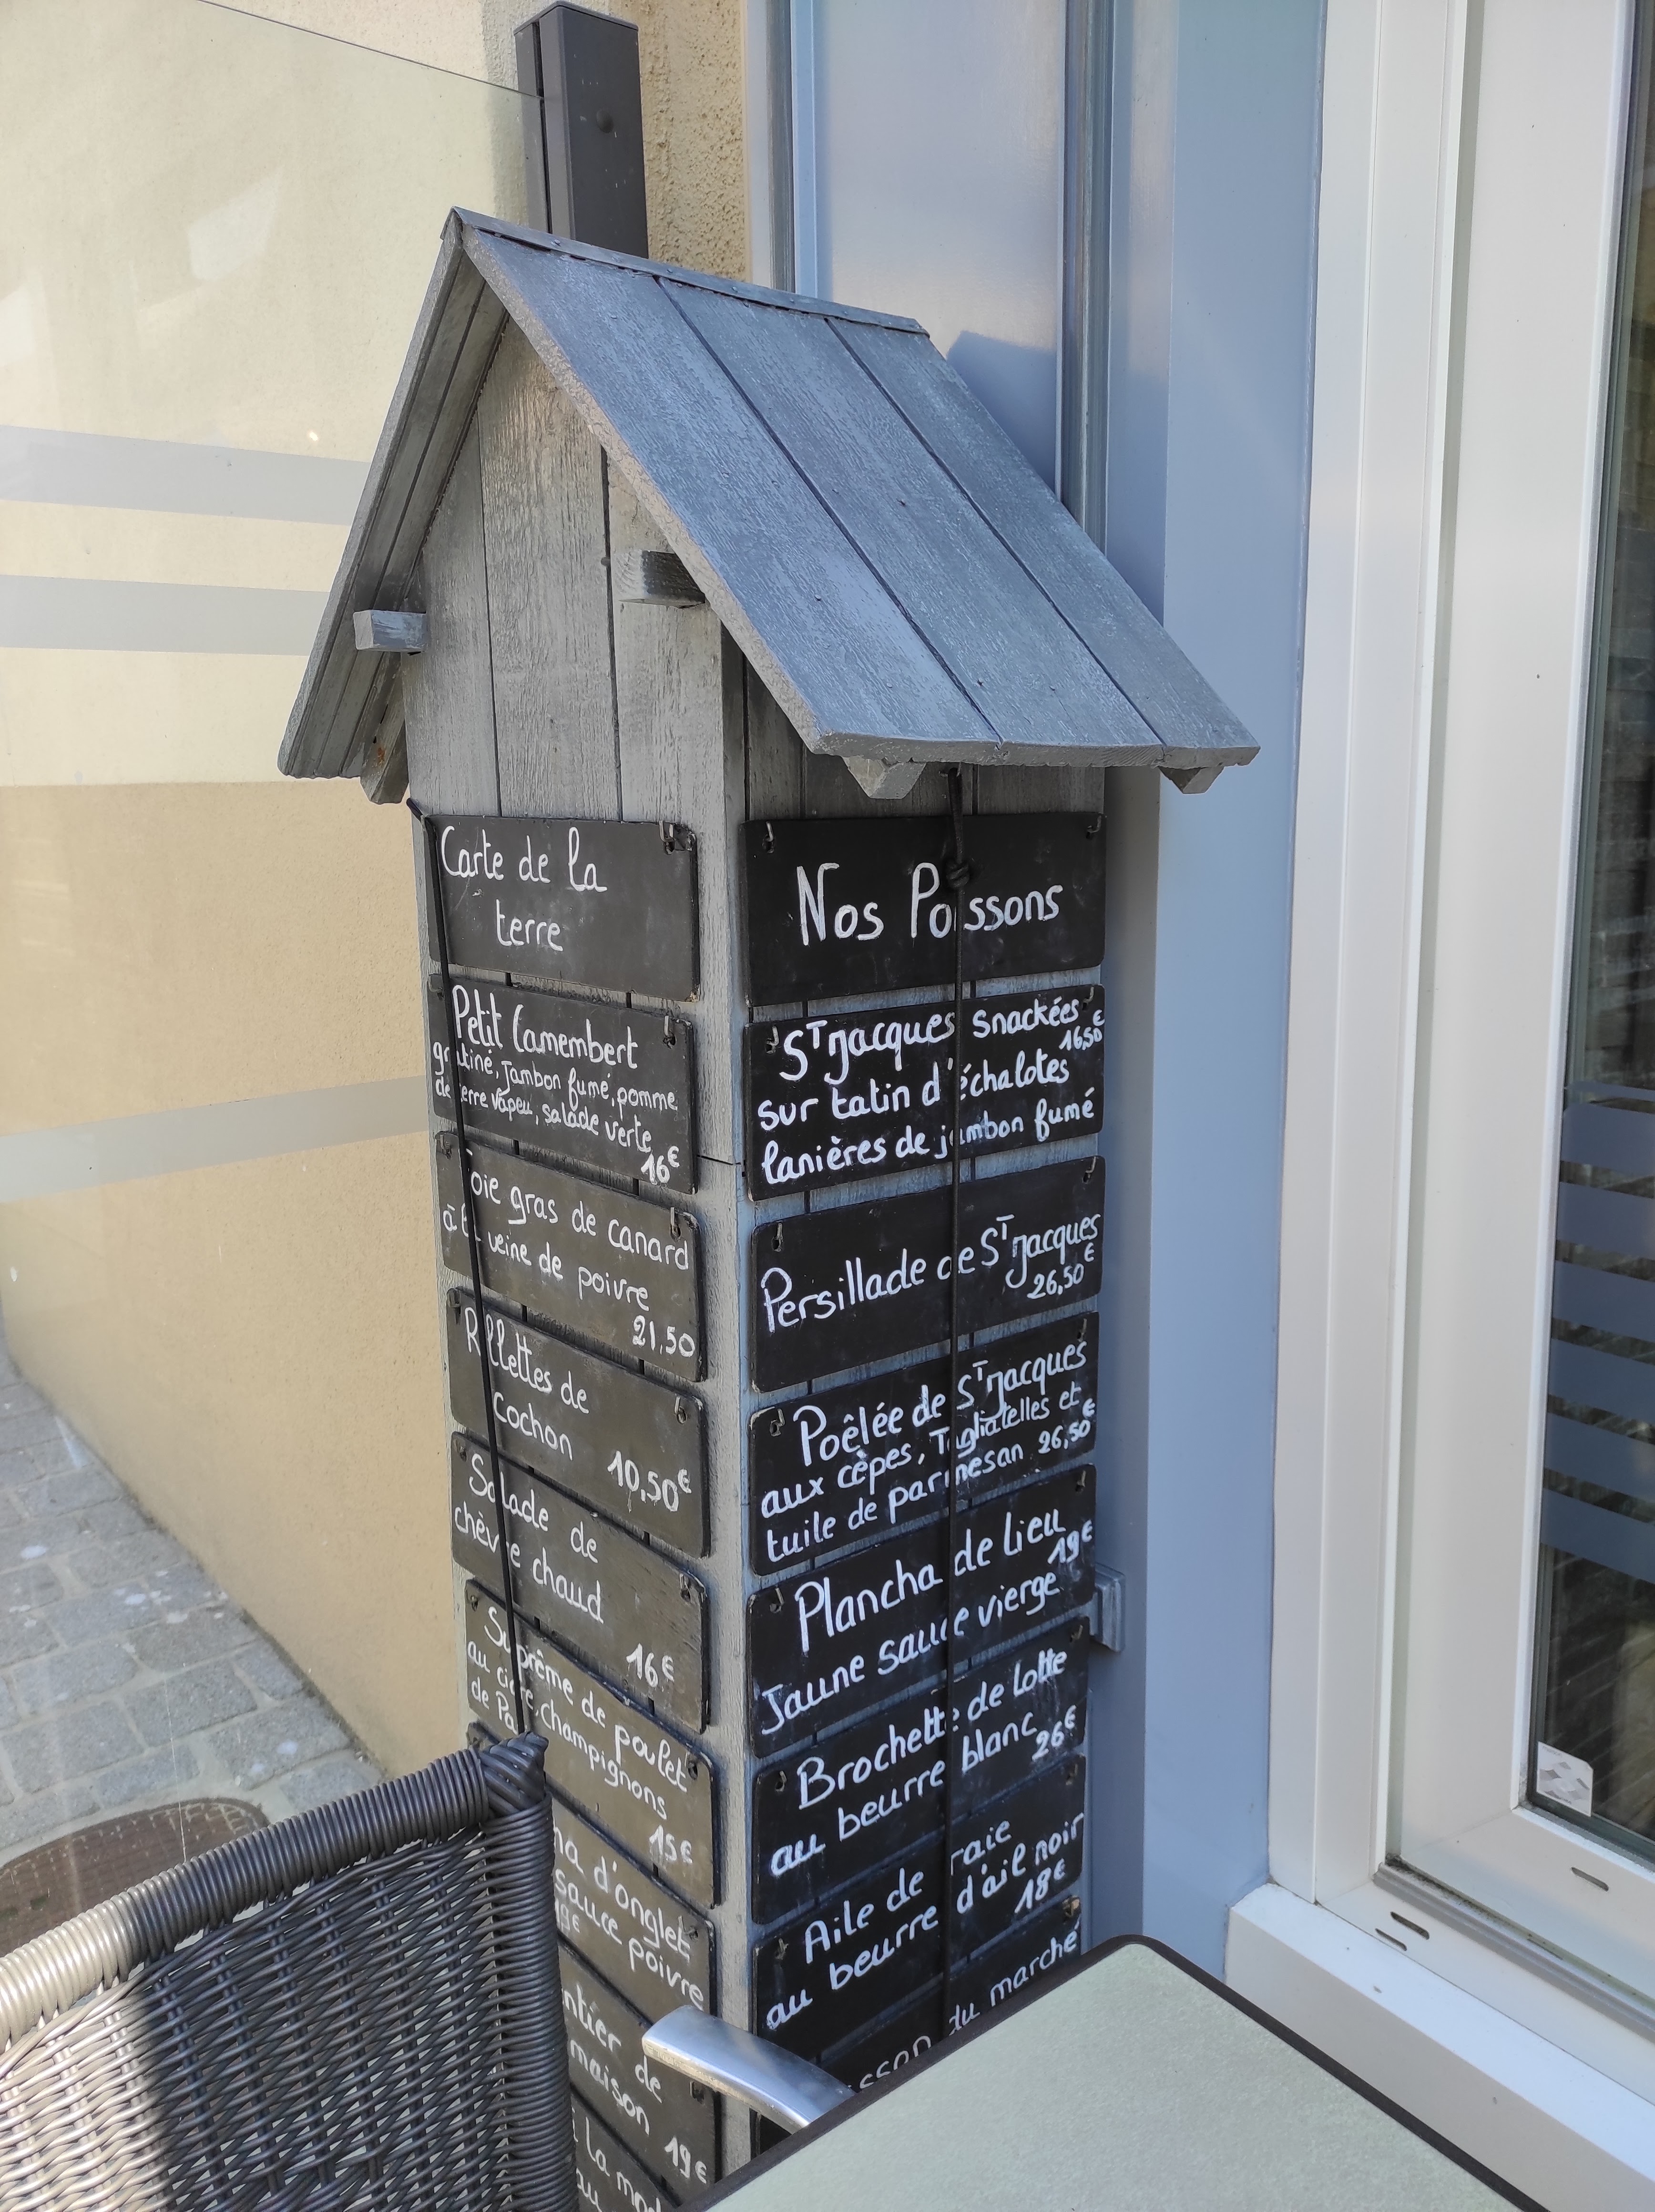 Carte de la
terre
Petit Camembert
gratiné, jambon fumé, pomme
de terre vapeur, salade verte
16€
Foie gras de canard
à la veine de poivre
21,50
Rillettes de
Cochon 10,50€
Salade de
chèvre chaud
16€
Suprême de poulet
au cidre, champignons
de
15€
d'onglet
sauce poivre
19€
de
maison
19€
la
Nos Poissons
ST Jacques Snackées
16,50€
sur tatin d'échalotes
lanières de jambon fumé
Persillade de ST Jacques
26,50€
Poêlée de ST Jacques
aux cèpes, Tagliatelles et
tuile de parmesan 26,50€
Plancha de Lieu
19€
Jaune sauce vierge
Brochette de lotte
au beurre blanc 26€
Aile de raie
au beurre d'ail noir
18€
du marché